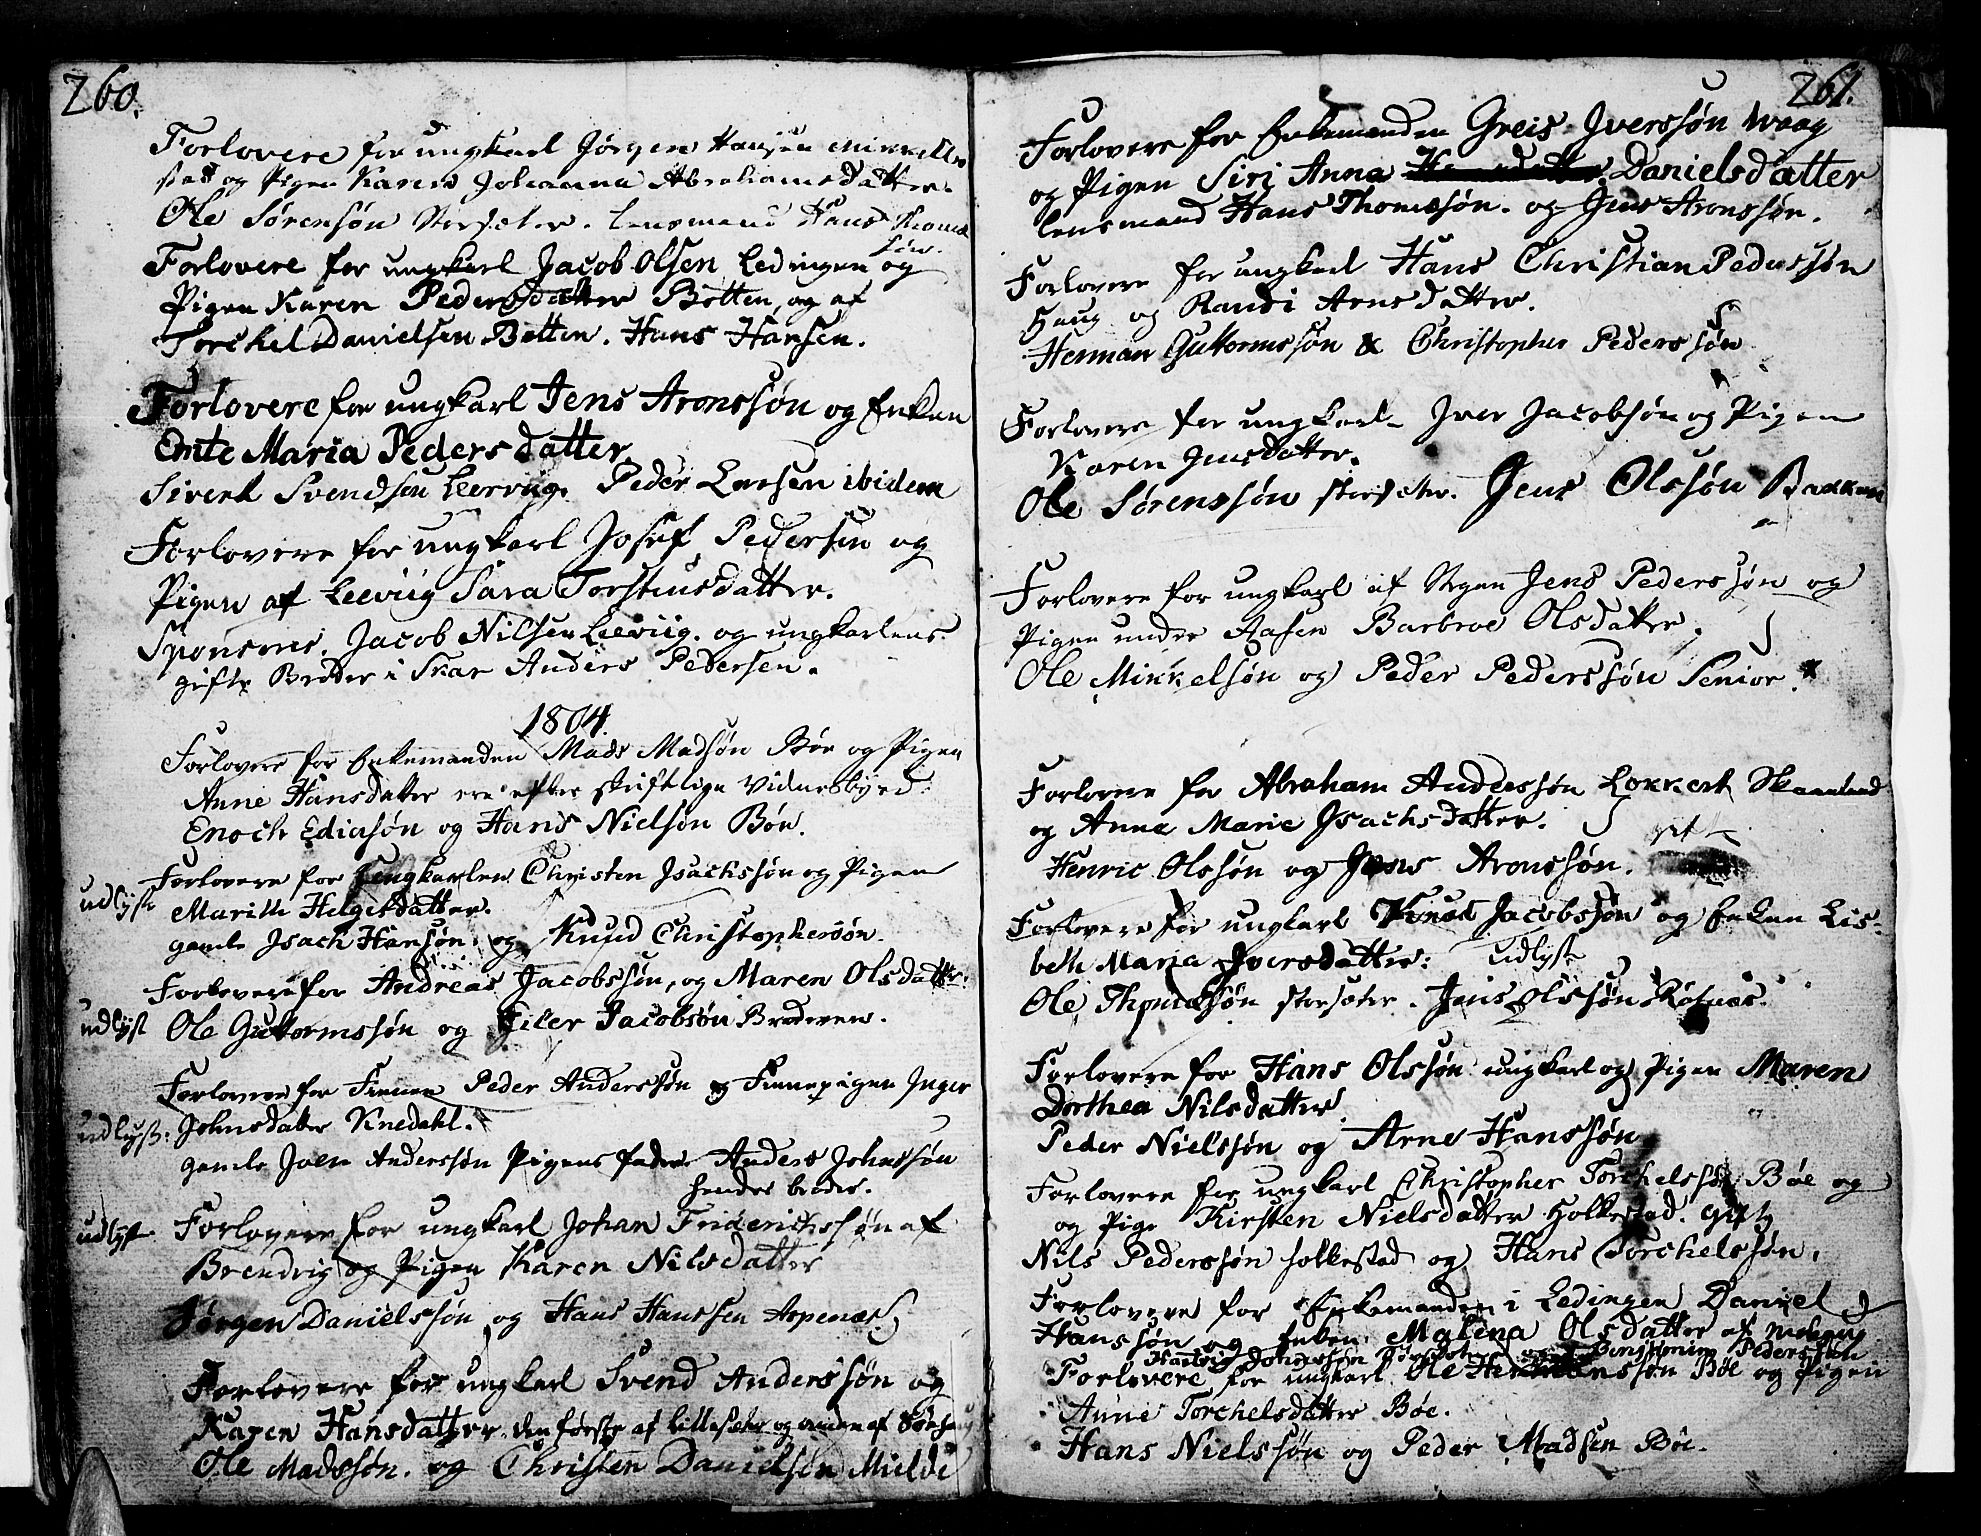 260.
Forlovere for ungkarl Jørgen Hansen Mikkelbo
stad og Pigen Karen Johanna Abrahamsdatter.
Ole Sørensøn Storsæter. Lensmand Hans Thomæ
søn.
Forlovere for ungkarl Jacob Olsen Ledingen og
Pigen Karen Pedersdatter Botten, og af
Torchel Danielsen Botten. Hans Hansen.
Forlovere for ungkarl Jens Aronssøn og Enken
Emte Maria Pedersdatter
Sivert Svendsen Leervig. Peder Larsen ibidem
Forlovere for ungkarl Josef Pedersen og
Pigen af Leeviig Sara Torstensdatter.
Sponsores. Jacob Nilsen Leeviig. og ungkarlens
gifte Broder i Skar Anders Pedersen.
1804.
Forlovere for Enkemanden Mads Madsøn Bøe og Pigen
Anne Hansdatter ere efter skriftlige Vidnesbyrd
Enoch Ediasøn og Hans Nielsøn Bøe.
udlyst Forlovere for Ungkarlen Christen Isachssøn og Pigen
Marith Helgesdatter.
gamle Isach Hansøn og Knud Christophersøn.
Forlovere for Andreas Jacobssøn, og Maren Olsdatter.
udlyst Ole Guttormssøn og Eiler Jacobsøn Broderen.
Forlovere for Finnen Peder Anderssøn og Finnepigen Inger
udlyst: Johnsdatter Knedahl.
gamle Joen Anderssøn Pigens fader Anders Johnssøn
hendes broder.
udlyst Forlovere for ungkarl Johan Friderichssøn af
Brendvig og Pigen Karen Nilsdatter
Jørgen Danielssøn og Hans Hanssen Aspenæs
Forlovere for ungkarl Svend Anderssøn og
Karen Hansdatter den første af Lillesæter og anden af
Ole Madssøn. og Christen Danielsøn Mielde
261.
Forlovere for Enkemanden Greis Iverssøn Waag
og Pigen Siri Anna Danielsdatter
Lensmand Hans Thomæsøn. og Jens Aronssøn.
Forlovere for ungkarl Hans Christian Pederssøn
Haug og Randi Arnsdatter.
Herman Guttormssøn & Christopher Pederssøn
Forlovere for ungkarl Iver Jacobsøn og Pigen
Karen Jensdatter.
Ole Sørenssøn storsæter. Jens Olssøn Bakken
Forlovere for ungkarl af Stegen Jens Pederssøn og
Pigen under Aasen Barbroe Olsdatter.
Ole Mikkelsøn og Peder Pederssøn Senior.
Forlovere for Abraham Anderssøn Lokkert Skaanland
og Anne Marie Isachsdatter. gift
Henric Olssøn og Jens Aronssøn.
Forlovere for ungkarl Knud Jacobssøn og Enken Lis-
beth Maria Iversdatter: udlyst
Ole Thomæsøn storsæter. Jens Olssøn Røsnæs.
Forlovere for Hans Olssøn ungkarl og Pigen Maren
Dorthea Nilsdatter
Peder Nielssøn og Arne Hanssøn
Forlovere for ungkarl Christopher Torchelssøn Bøe og
og Pige Kirsten Nielsdatter Holkestad. gift
Nils Pederssøn holkestad og Hans Torchelssøn.
Forlovere for Enkemanden i Ledingen Daniel
Hanssøn og Enken Malena Olsdatter af
Pederssøn
Forlovere for ungkarl Ole Hermanssøn Bøe og Pigen
Anne Torchelsdatter Bøe.
Hans Nielssøn og Peder Madsen Bøe.